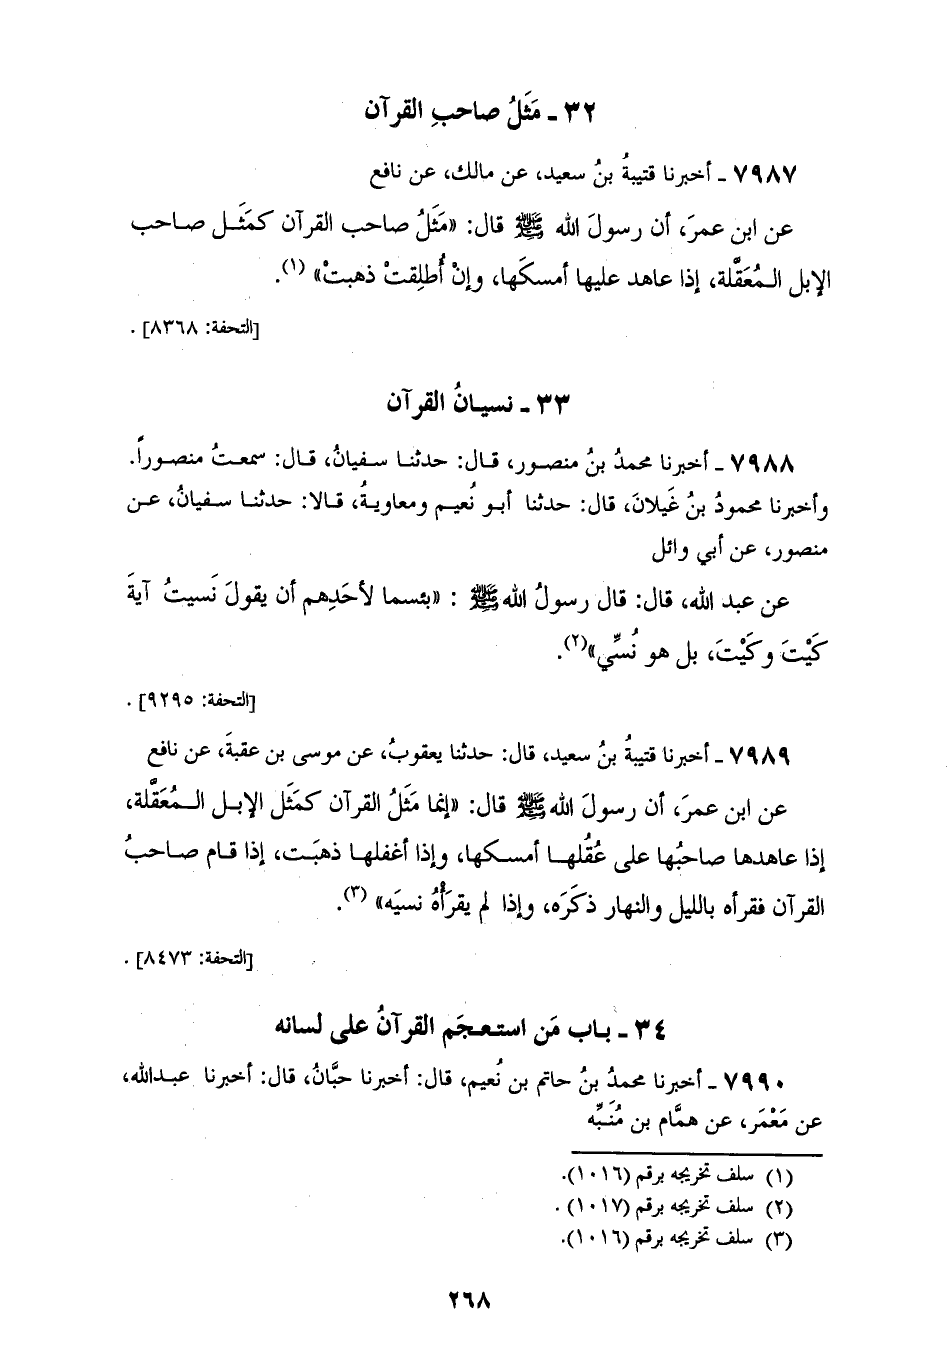 ٣٢ ـ مَثَلُ صاحبِ القرآن
٧٩٨٧ ـ أخبرنا قتيبةُ بنُ سعيد، عن مالك، عن نافع
عن ابن عمرَ، أن رسولَ الله ﷺ قال: «مَثَلُ صاحب القرآن كمَثَل صاحب
الإبل المُعَقَّلة، إذا عاهد عليها أمسكَها، وإنْ أُطلِقتْ ذهبتْ» (١).
[التحفة: ٨٣٦٨] .
٣٣ ـ نسيانُ القرآن
٧٩٨٨ ـ أخبرنا محمدُ بنُ منصور، قال: حدثنا سفيانُ، قال: سمعتُ منصوراً.
وأخبرنا محمودُ بنُ غَيلانَ، قال: حدثنا أبو نُعيم ومعاويةُ، قالا: حدثنا سفيانُ، عن
منصور، عن أبي وائل
عن عبد الله، قال: قال رسولُ الله ﷺ : «بئسما لأحَدِهم أن يقولَ نَسيتُ آيةَ
كَيْتَ وكَيْتَ، بل هو نُسِّي»(٢).
[التحفة: ٩٢٩٥] .
٧٩٨٩ ـ أخبرنا قتيبةُ بنُ سعيد، قال: حدثنا يعقوبُ، عن موسى بن عقبةَ، عن نافع
عن ابن عمرَ، أن رسولَ الله ﷺ قال: «إنما مَثَلُ القرآن كمَثَل الإبل المُعَقَّلة،
إذا عاهدها صاحبُها على عُقُلها أمسكها، وإذا أغفلها ذهبَت، إذا قام صاحبُ
القرآن فقرأه بالليل والنهار ذكَرَه، وإذا لم يقرَأْهُ نسيَه» (٣).
[التحفة: ٨٤٧٣] .
٣٤ ـ باب مَن استعجَم القرآنُ على لسانه
٧٩٩٠ ـ أخبرنا محمدُ بنُ حاتم بن نُعيم، قال: أخبرنا حبَّانُ، قال: أخبرنا عبدالله،
عن مَعْمَر، عن همَّام بن مُنَبِّه
(١) سلف تخريجه برقم (١٠١٦).
(٢) سلف تخريجه برقم (١٠١٧) .
(٣) سلف تخريجه برقم (١٠١٦).
٢٦٨